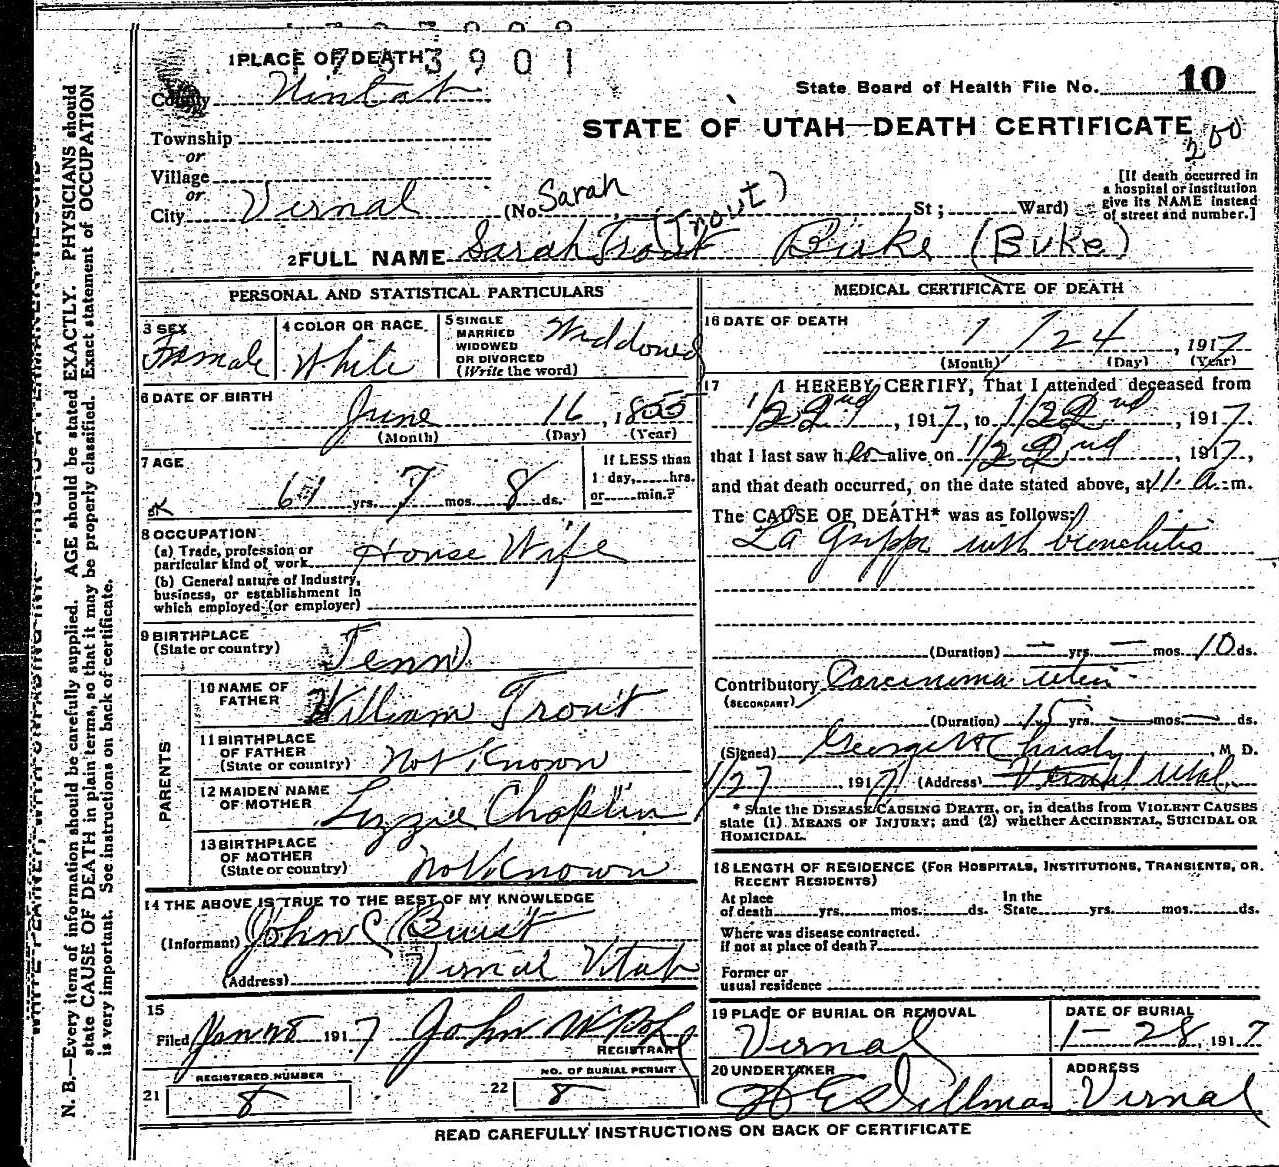 1 PLACE OF DEATH
1753901
State Board of Health File No. 10
County Uintah
STATE OF UTAH—DEATH CERTIFICATE
200
Township
or
Village
or
City Vernal (No. Sarah (Trout) St; Ward)
[If death occurred in
a hospital or institution
give its NAME instead
of street and number.]
2 FULL NAME Sarah Trout Burke (Buke)
PERSONAL AND STATISTICAL PARTICULARS
3 SEX
Female
4 COLOR OR RACE
White
5 SINGLE
MARRIED
WIDOWED
OR DIVORCED
(Write the word)
Widdowed
6 DATE OF BIRTH
June 16, 1855
(Month) (Day) (Year)
7 AGE
61 yrs. 7 mos. 8 ds.
If LESS than
1 day, hrs.
or min.?
8 OCCUPATION
(a) Trade, profession or
particular kind of work House Wife
(b) General nature of Industry,
business, or establishment in
which employed (or employer)
9 BIRTHPLACE
(State or country) Tenn
PARENTS
10 NAME OF
FATHER William Trout
11 BIRTHPLACE
OF FATHER
(State or country) Not Known
12 MAIDEN NAME
OF MOTHER Lizzie Chaplin
13 BIRTHPLACE
OF MOTHER
(State or country) Not Known
14 THE ABOVE IS TRUE TO THE BEST OF MY KNOWLEDGE
(Informant) John C
(Address) Vernal Utah
15
Filed Jan 28 1917 John W
REGISTRAR
REGISTERED NUMBER
21 8
NO. OF BURIAL PERMIT
22 8
MEDICAL CERTIFICATE OF DEATH
16 DATE OF DEATH
1/24, 1917
(Month) (Day) (Year)
17 I HEREBY CERTIFY, That I attended deceased from
1/22nd, 1917, to 1/22nd, 1917.
that I last saw her alive on 1/22nd, 1917,
and that death occurred, on the date stated above, at 11 a. m.
The CAUSE OF DEATH* was as follows:
La Gripp with bronchitis
(Duration) — yrs. — mos. 10 ds.
Contributory Carcinoma uteri
(SECONDARY)
(Duration) 15 yrs. — mos. — ds.
(Signed) George H Christy, M. D.
1/27 1917 (Address) Vernal Utah
* State the DISEASE CAUSING DEATH, or, in deaths from VIOLENT CAUSES
state (1) MEANS OF INJURY; and (2) whether ACCIDENTAL, SUICIDAL OR
HOMICIDAL.
18 LENGTH OF RESIDENCE (FOR HOSPITALS, INSTITUTIONS, TRANSIENTS, OR
RECENT RESIDENTS)
At place
of death yrs. mos. ds.
In the
State yrs. mos. ds.
Where was disease contracted.
if not at place of death?
Former or
usual residence
19 PLACE OF BURIAL OR REMOVAL
Vernal
DATE OF BURIAL
1-28, 1917
20 UNDERTAKER
Dillman
ADDRESS
Vernal
READ CAREFULLY INSTRUCTIONS ON BACK OF CERTIFICATE
N. B.—Every item of information should be carefully supplied. AGE should be stated EXACTLY. PHYSICIANS should
state CAUSE OF DEATH in plain terms, so that it may be properly classified. Exact statement of OCCUPATION
is very important. See instructions on back of certificate.